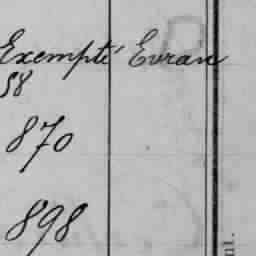 Exempté Evran
58
870
898